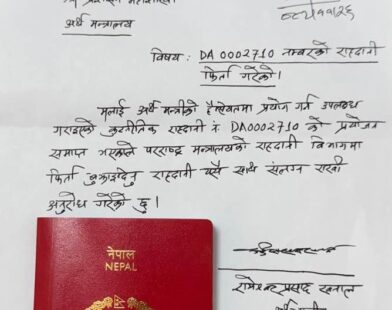 अर्थ मन्त्रालय
विषय : DA 0002710 नम्बरको राहदानी
फिर्ता गरेको।
मलाई अर्थ मन्त्रीको हैसियतमा प्रयोग गर्न उपलब्ध
गराइएको कुटनीतिक राहदानी नं DA0002710 को प्रयोजन
समाप्त भएकोले परराष्ट्र मन्त्रालयको राहदानी विभागमा
फिर्ता बुझाइदिनु राहदानी यसै साथ संलग्न राखी
अनुरोध गरेको छु।
नेपाल
NEPAL
रामेश्वर प्रसाद खनाल